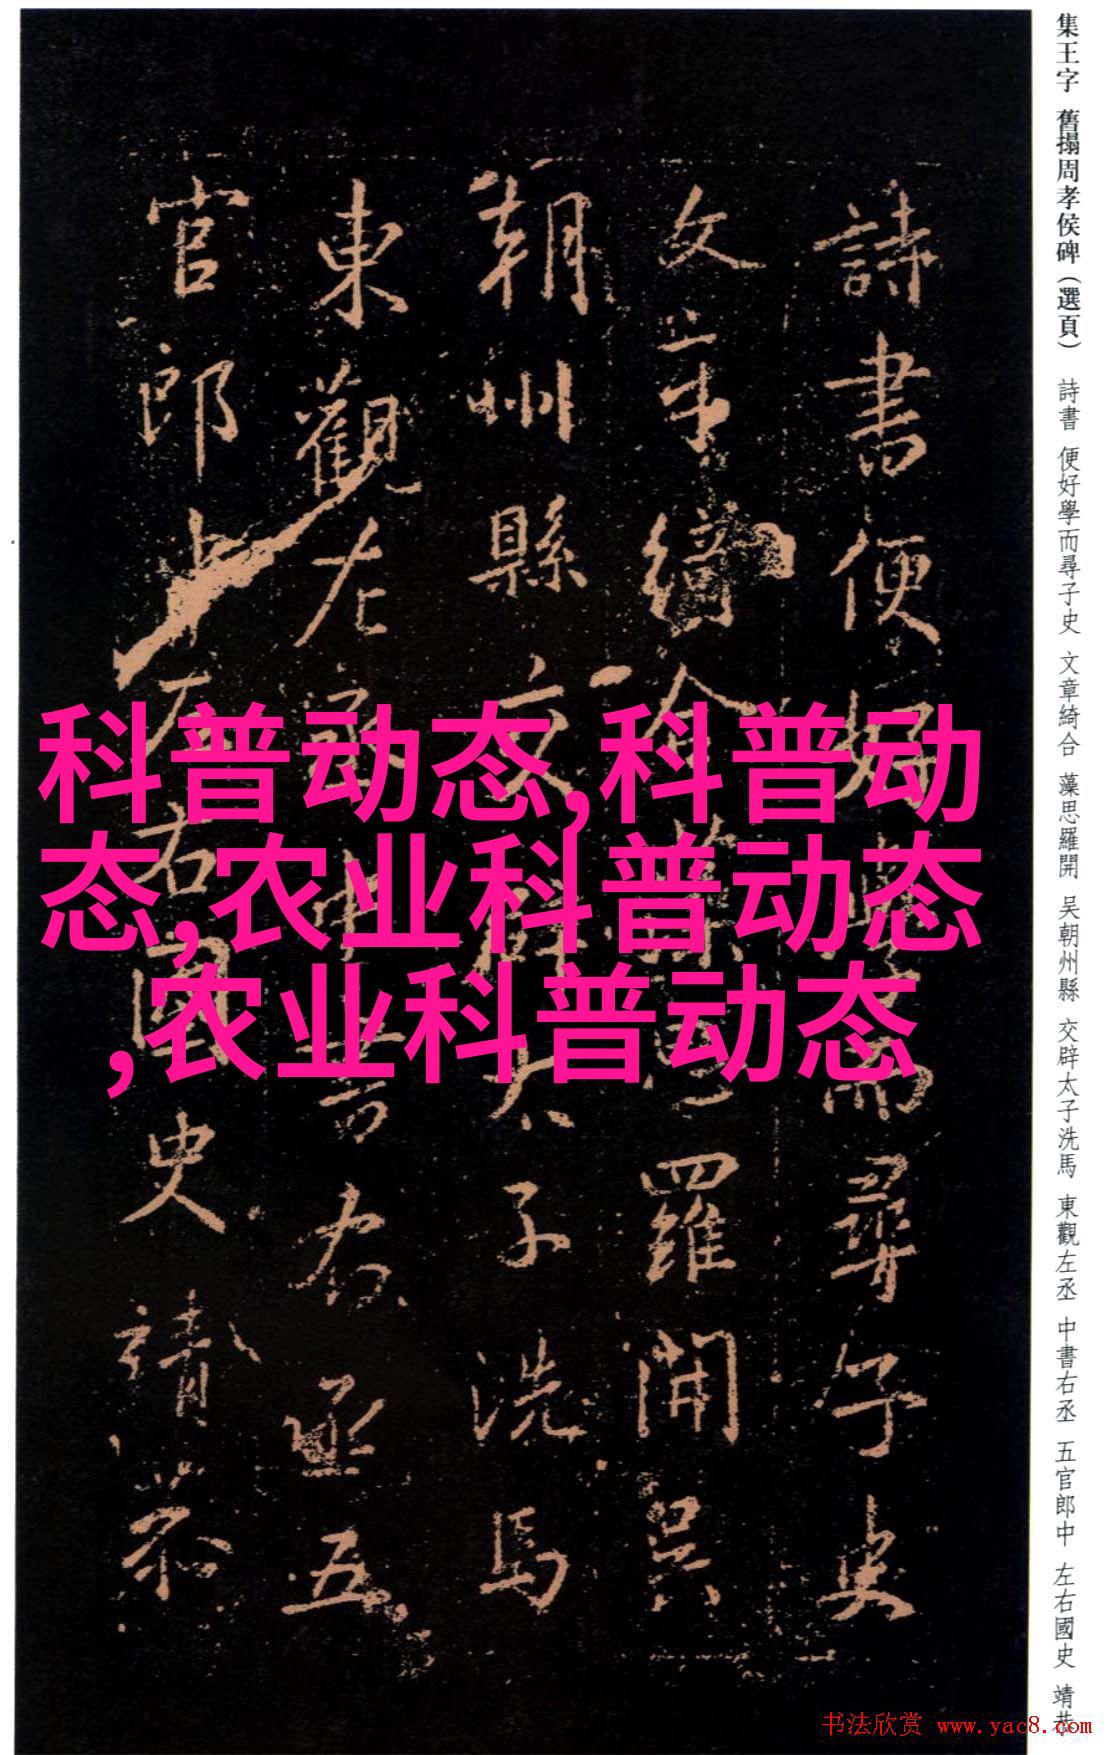 集王字 舊搨周孝侯碑（選頁） 詩書 便好學而尋子史 文章綺合 藻思羅開 吴朝州縣 交辟太子洗馬 東觀左丞 中書右丞 五官郎中 左右國史 靖恭
詩書便好學而尋子史
文章綺合藻思羅開吳
朝州縣交辟太子洗馬
東觀左丞中書右丞五
官郎中左右國史靖恭
科普动态,科普动
态,农业科普动态
,农业科普动态
书法欣赏 www.yac8.com